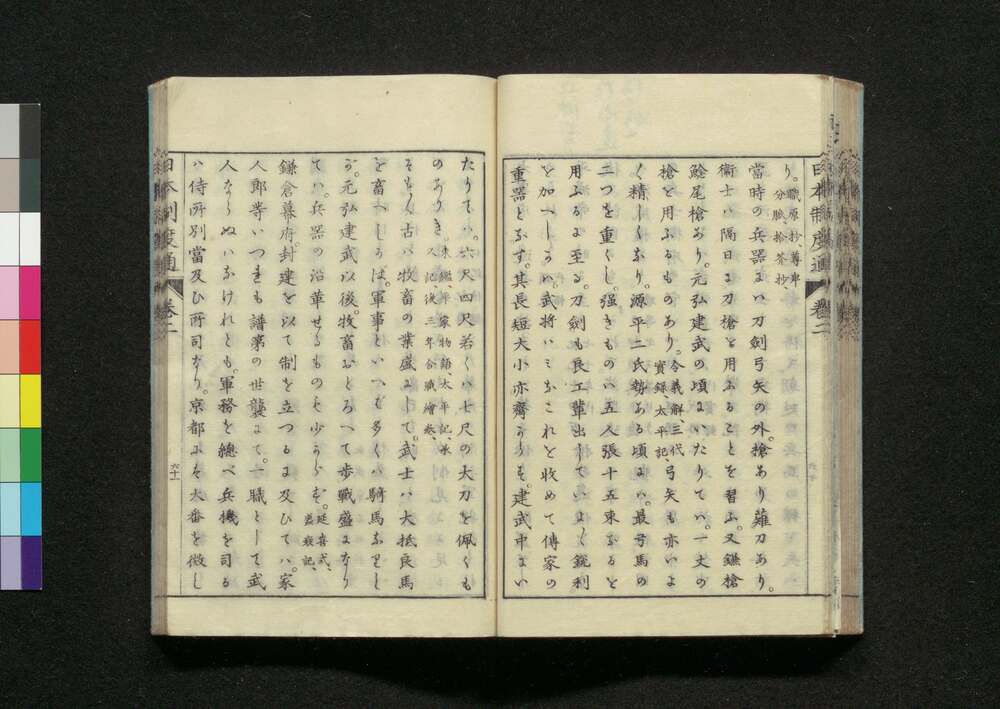 日本制度通 卷二
り。職原抄、尊卑
分脈、拾芥抄、
當時の兵器にハ刀劍弓矢の外。槍あり薙刀あり。
衞士ハ隔日に刀槍を用ふることを習ふ。又鎌槍
鯰尾槍あり。元弘建武の頃にいたりてハ。一丈の
槍を用ふるものあり。令義解、三代
實録、太平記、弓矢も亦いよ
く精しくなり。源平二氏勢ある頃にハ。最弓馬の
二つを重くし。强きものハ五人張十五束なると
用ふるに至る。刀劍も良工輩出していよく銳利
を加へしかハ。武將ハミなこれを收めて傳家の
重器となす。其長短大小亦齊からす。建武中にハ
六十
たりてハ。六尺四尺若くハ七尺の大刀を佩くも
のありき。東鑑、平家物語、太平記、承
久記、後三年合戰繪卷、
そもく古ハ牧畜の業盛にして。武士ハ大抵良馬
を畜へしかは。軍事といへハ多くハ騎馬なりし
が。元弘建武以後。牧畜おとろへて歩戰盛になり
てハ。兵器の沿革せるもの少からず。延喜式、
盛衰記、
鎌倉幕府。封建を以て制を立つるに及ひてハ。家
人郎等いつれも譜第の世襲にて。一職として武
人ならぬハなけれとも。軍務を總べ兵機を司る
ハ侍所別當及ひ所司なり。京都よを大番を徴し
六十一
日本制度通 卷二